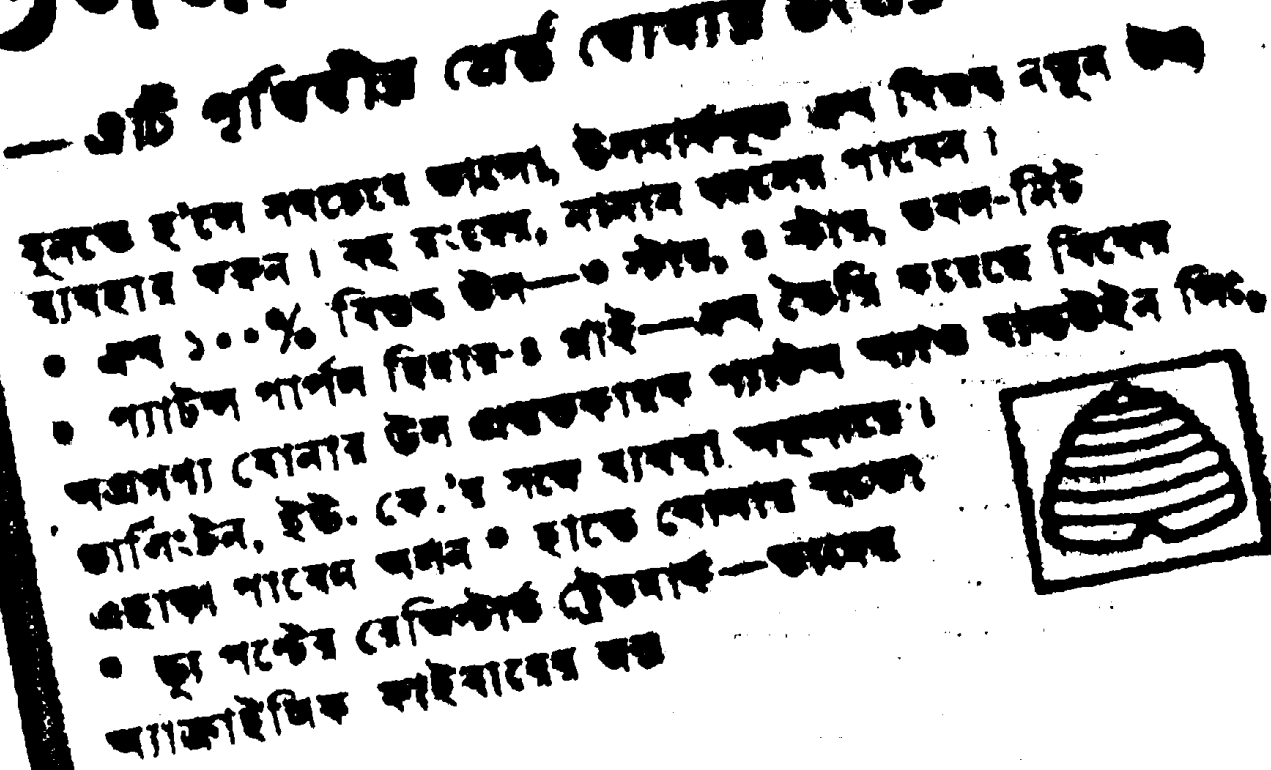 —এটি পৃথিবীর শ্রেষ্ঠ বোনার
বুনতে হ'লে সবচেয়ে ভালো, উলমার্কযুক্ত এবং বিশুদ্ধ নতুন উল
ব্যবহার করুন। বহু রংয়ের, নানান ধরনের পাবেন।
• এবং ১০০% বিশুদ্ধ উল—৩ স্টার, ৪ স্টার, ডবল-নিট
• প্যাটন্স পার্পল হিদার-৪ প্লাই—এবং তৈরি করেছে বিশ্বের
অগ্রগণ্য বোনার উল প্রস্তুতকারক প্যাটন্স অ্যান্ড বাল্ডউইন লিঃ,
ডার্লিংটন, ইউ. কে.'র সঙ্গে ব্যবস্থা অনুসারে।
এছাড়া পাবেন অসল • হাতে বোনার
• ড্যু পন্টের রেজিস্টার্ড ট্রেডমার্ক—তাদের
অ্যাক্রাইলিক ফাইবারের জন্য